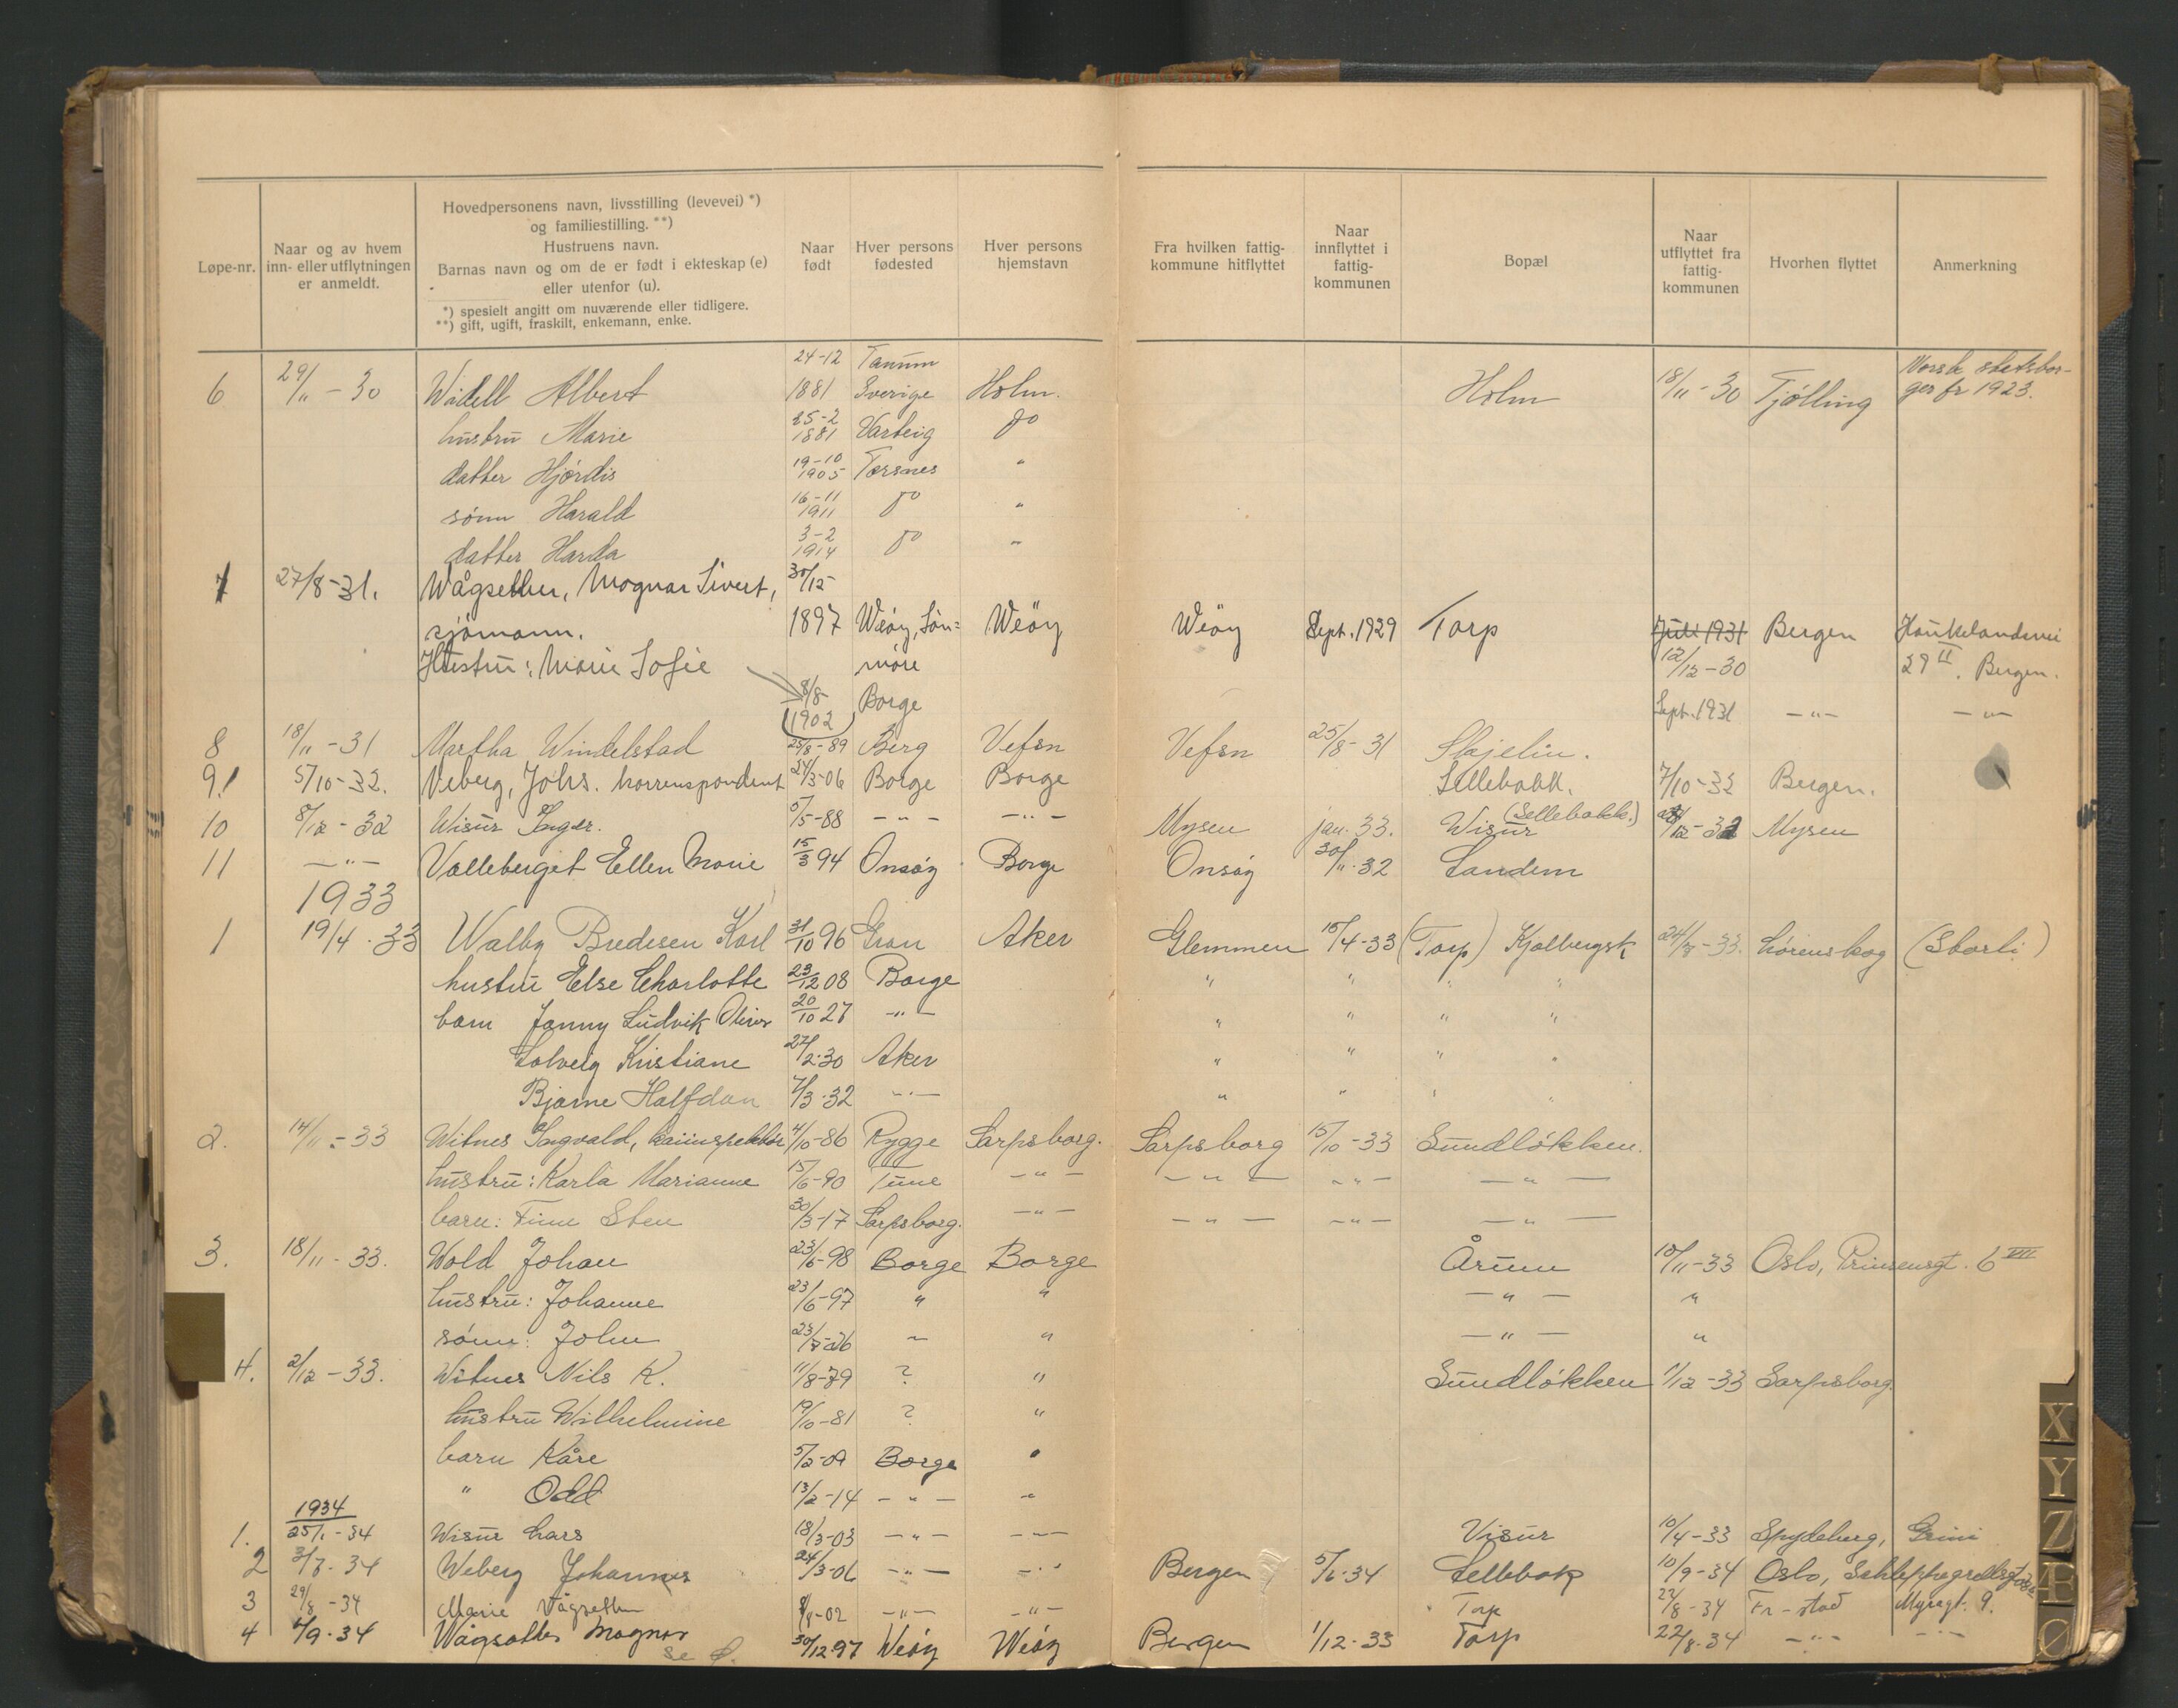 Løpe-nr.
Naar og av hvem inn- eller utflytningen er anmeldt.
Hovedpersonens navn, livsstilling (levevei) *)
og familiestilling. **)
Hustruens navn.
Barnas navn og om de er født i ekteskap (e)
eller utenfor (u).
*) spesielt angitt om nuværende eller tidligere.
**) gift, ugift, fraskilt, enkemann, enke.
Naar født
Hver persons fødested
Hver persons hjemstavn
Fra hvilken fattig-kommune hitflyttet
Naar innflyttet i fattig-kommunen
Bopæl
Naar utflyttet fra fattig-kommunen
Hvorhen flyttet
Anmerkning
24-12 Tanum Norsk statsbor-
6 29/11-30 Wadell Albert 1881 Sverige Holm. Holm 18/11-30 Tjølling ger fr 1923.
hustru Marie 25-2 1881 Varteig do
datter Hjørdis 19-10 1905 Torsnes "
sønn Harald 16-11 1911 do "
datter Harda 3-2 1914 do "
7 27/8-31. Wågsether, Magnar Sivert, 30/12-
sjømann. 1897 Weöy, Sön= Weöy Weöy Sept. 1929 Torp Juli 1931 Bergen Haukelandsvei
Hustru: Marie Sofie møre 12/12-30 29 II. Bergen.
8/8- 1902 Borge Sept. 1931 -"- -"-
8 18/11-31 Martha Windelstad 25/8-89 Berg Vefsn Vefsn 25/8-31 Skjelin.
9. 5/10-32. Veberg, Johs. korrenspondent 24/3-06 Borge Borge Sellebakk. 7/10-32 Bergen.
10 8/12-32 Wisur Inger. 5/5-88 -"- -"- Mysen jan. 33. Wisur (Sellebakk.) /12-32 Mysen
11 -"- Valleberget Ellen Marie 15/3 94 Onsøy Borge Onsøy 30/11-32 Sandem
1933
1 19/4.33 Walby Bredesen Karl 31/10 96 Gran Aker Glemmen 15/4-33 (Torp) Kjølbergsk 24/8-33. Lørenskog (Storli)
hustru Else Charlotte 23/12 08 Borge " " " "
barn Janny Ludvik Oliver 20/10 27 -"- " " " "
Solveig Kristiane 27/2-30 Aker " " " "
Bjarne Halfdan 7/3-32 -"- " " " "
2. 14/11-33 Witnes Ingvald, kaiinspektør 4/10-86 Rygge Sarpsborg. Sarpsborg 15/10-33 Sundløkken.
hustru: Karla Marianne 15/6-90 Tune -"- -"- -"- -"-
barn: Finn Sten 30/3-17 Sarpsborg. -"- -"- -"- -"-
3. 18/11-33. Wold Johan 23/6-98 Borge Borge Årum 10/11-33 Oslo, Prinsensgt. 6 VII
hustru: Johanne 23/6-97 " " -"- "
sønn: John 23/7-26 " " -"- "
4. 2/12-33. Witnes Nils K. 11/8-79 ? " Sundløkken 1/12-33 Sarpsborg.
hustru Wilhelmine 19/10-81 ? "
barn Kåre 5/2-09 Borge "
" Odd 13/2-14 -"- "
1934
1. 25/1-34 Wisur Lars 18/3-03 -"- -"- Visur 10/4-33 Spydeberg, Grini
2 3/7-34 Weberg Johannes 24/3-06 -"- -"- Bergen 5/6-34 Sellebak 10/9-34 Oslo,
3 29/8-34 Marie Vågsether 8/8-02 -"- -"- Torp 22/8-34 Fr-stad Myragt. 9.
4 6/9-34 Wågsæther Magnar 30/12-97 Weöy Weöy Bergen 1/12-33 Torp 22/8-34 -"- -"-
se
X
Y
Z
Æ
Ø